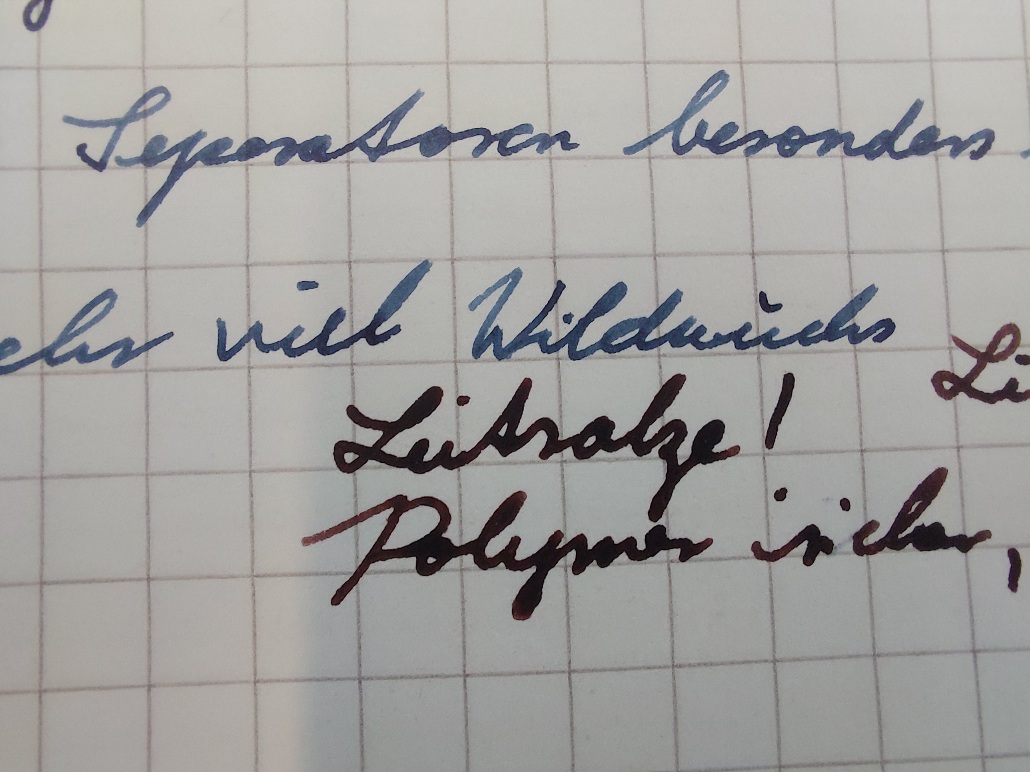 Separatoren besonders
viel Wildwuchs
Leitsalze!
Polymer in der,